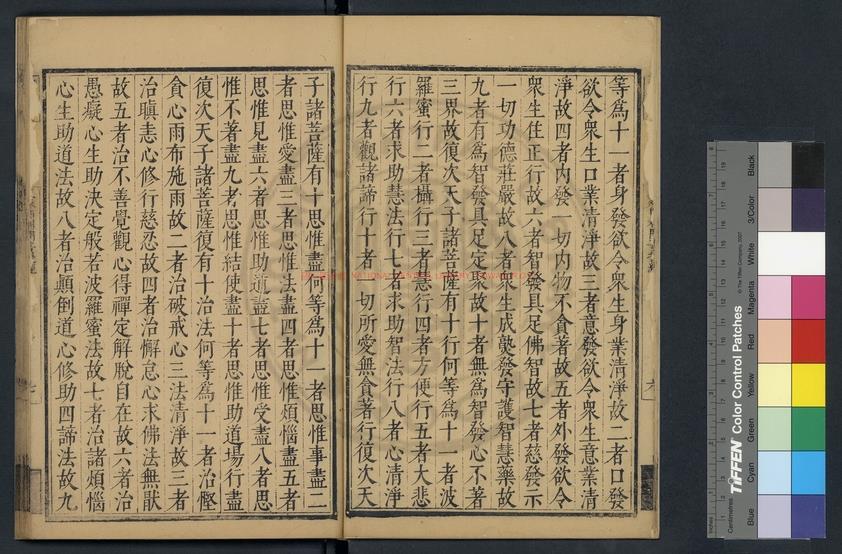 等爲十一者身發欲令衆生身業清淨故二者口發
欲令衆生口業清淨故三者意發欲令衆生意業清
淨故四者内發一切内物不貪著故五者外發欲令
衆生住正行故六者智發具足佛智故七者慈發示
一切功德莊嚴故八者衆生成熟發守護智慧藥故
九者有爲智發具足定聚故十者無爲智發心不著
三界故復次天子諸菩薩有十行何等爲十一者波
羅蜜行二者攝行三者慧行四者方便行五者大悲
行六者求助慧法行七者求助智法行八者心清淨
行九者觀諸諦行十者一切所愛無貪著行復次天
子諸菩薩有十思惟盡何等爲十一者思惟事盡二
者思惟愛盡三者思惟法盡四者思惟煩惱盡五者
思惟見盡六者思惟助道盡七者思惟受盡八者思
惟不著盡九者思惟結使盡十者思惟助道場行盡
復次天子諸菩薩復有十治法何等爲十一者治慳
貪心雨布施雨故二者治破戒心三法清淨故三者
治瞋恚心修行慈忍故四者治懈怠心求佛法無猒
故五者治不善覺觀心得禪定解脫自在故六者治
愚癡心生助決定般若波羅蜜法故七者治諸煩惱
心生助道法故八者治顛倒道心修助四諦法故九
TIFFEN Color Control Patches
© The Tiffen Company, 2007
Inches
Centimetres
Blue
Cyan
Green
Yellow
Red
Magenta
White
3/Color
Black